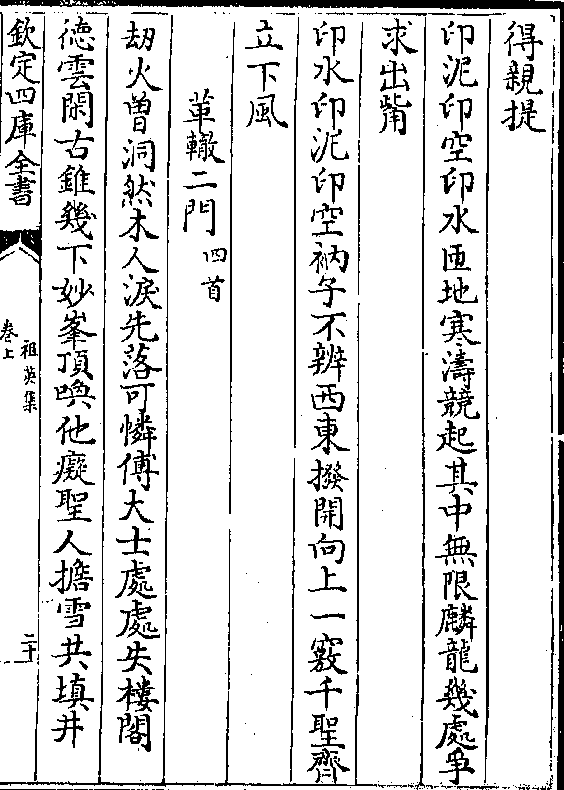 得親提
印泥印空印水匝地寒濤競起其中無限麟龍幾處爭
求出觜
印水印泥印空衲子不辨西東撥開向上一竅千聖齊
立下風
革轍二門 四首
劫火曽洞然木人淚先落可憐傅大士處處失樓閣
徳雲閑古錐幾下妙峯頂喚他癡聖人擔雪共填井
欽定四庫全書
祖英集
卷上
二十